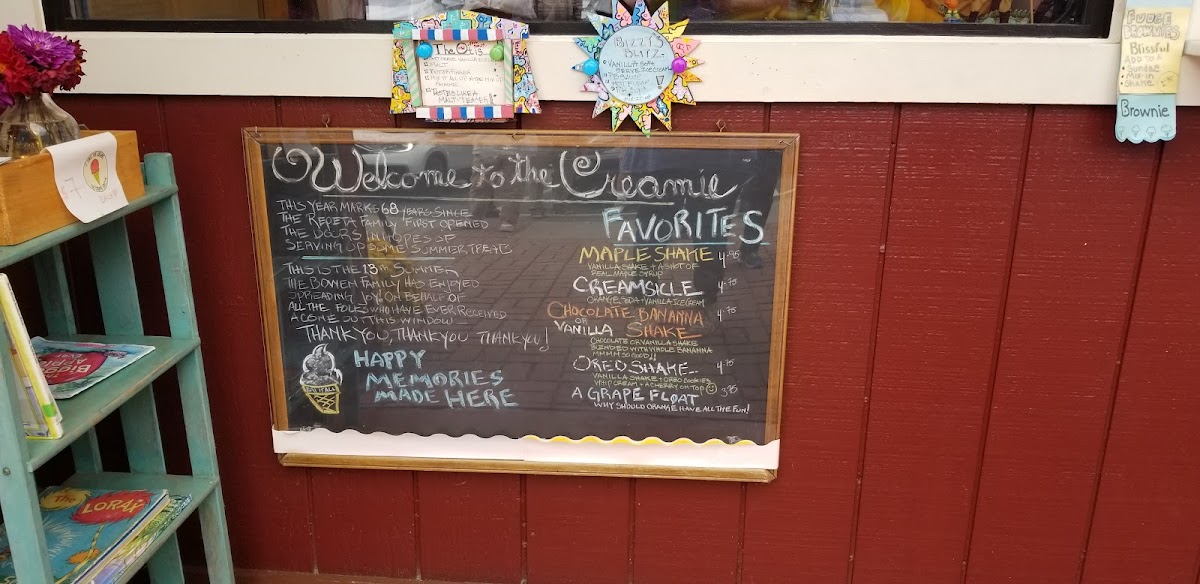 The Otis
MALT
TASTES LIKE A
BIZZY'S
BLITZ
VANILLA SOFT
SERVE ICE CREAM
FUDGE
BROWNIES
Blissful
ADD TO A
SUNDAE
MIX-IN
SHAKE
Brownie
Welcome to the Creamie
THIS YEAR MARKS 68 YEARS SINCE
THE REPETA FAMILY FIRST OPENED
THE DOORS IN HOPES OF
SERVING UP SOME SUMMER TREATS
THIS IS THE 13th SUMMER
THE BOWEN FAMILY HAS ENJOYED
SPREADING JOY ON BEHALF OF
ALL THE FOLKS WHO HAVE EVER RECEIVED
A CONE OUT THIS WINDOW
THANK YOU, THANK YOU THANK YOU!
HAPPY
MEMORIES
MADE HERE
FAVORITES
MAPLE SHAKE 4.95
VANILLA SHAKE + A SHOT OF
REAL MAPLE SYRUP
CREAMSICLE 4.75
ORANGE SODA + VANILLA ICE CREAM
CHOCOLATE BANANNA 4.75
OR
VANILLA SHAKE
CHOCOLATE OR VANILLA SHAKE
BLENDED WITH WHOLE BANANNA
MMMM SO GOOD!!
OREO SHAKE 4.75
VANILLA SHAKE + OREO COOKIES
WHIP CREAM + A CHERRY ON TOP
A GRAPE FLOAT 3.95
WHY SHOULD ORANGE HAVE ALL THE FUN!
The LORAX